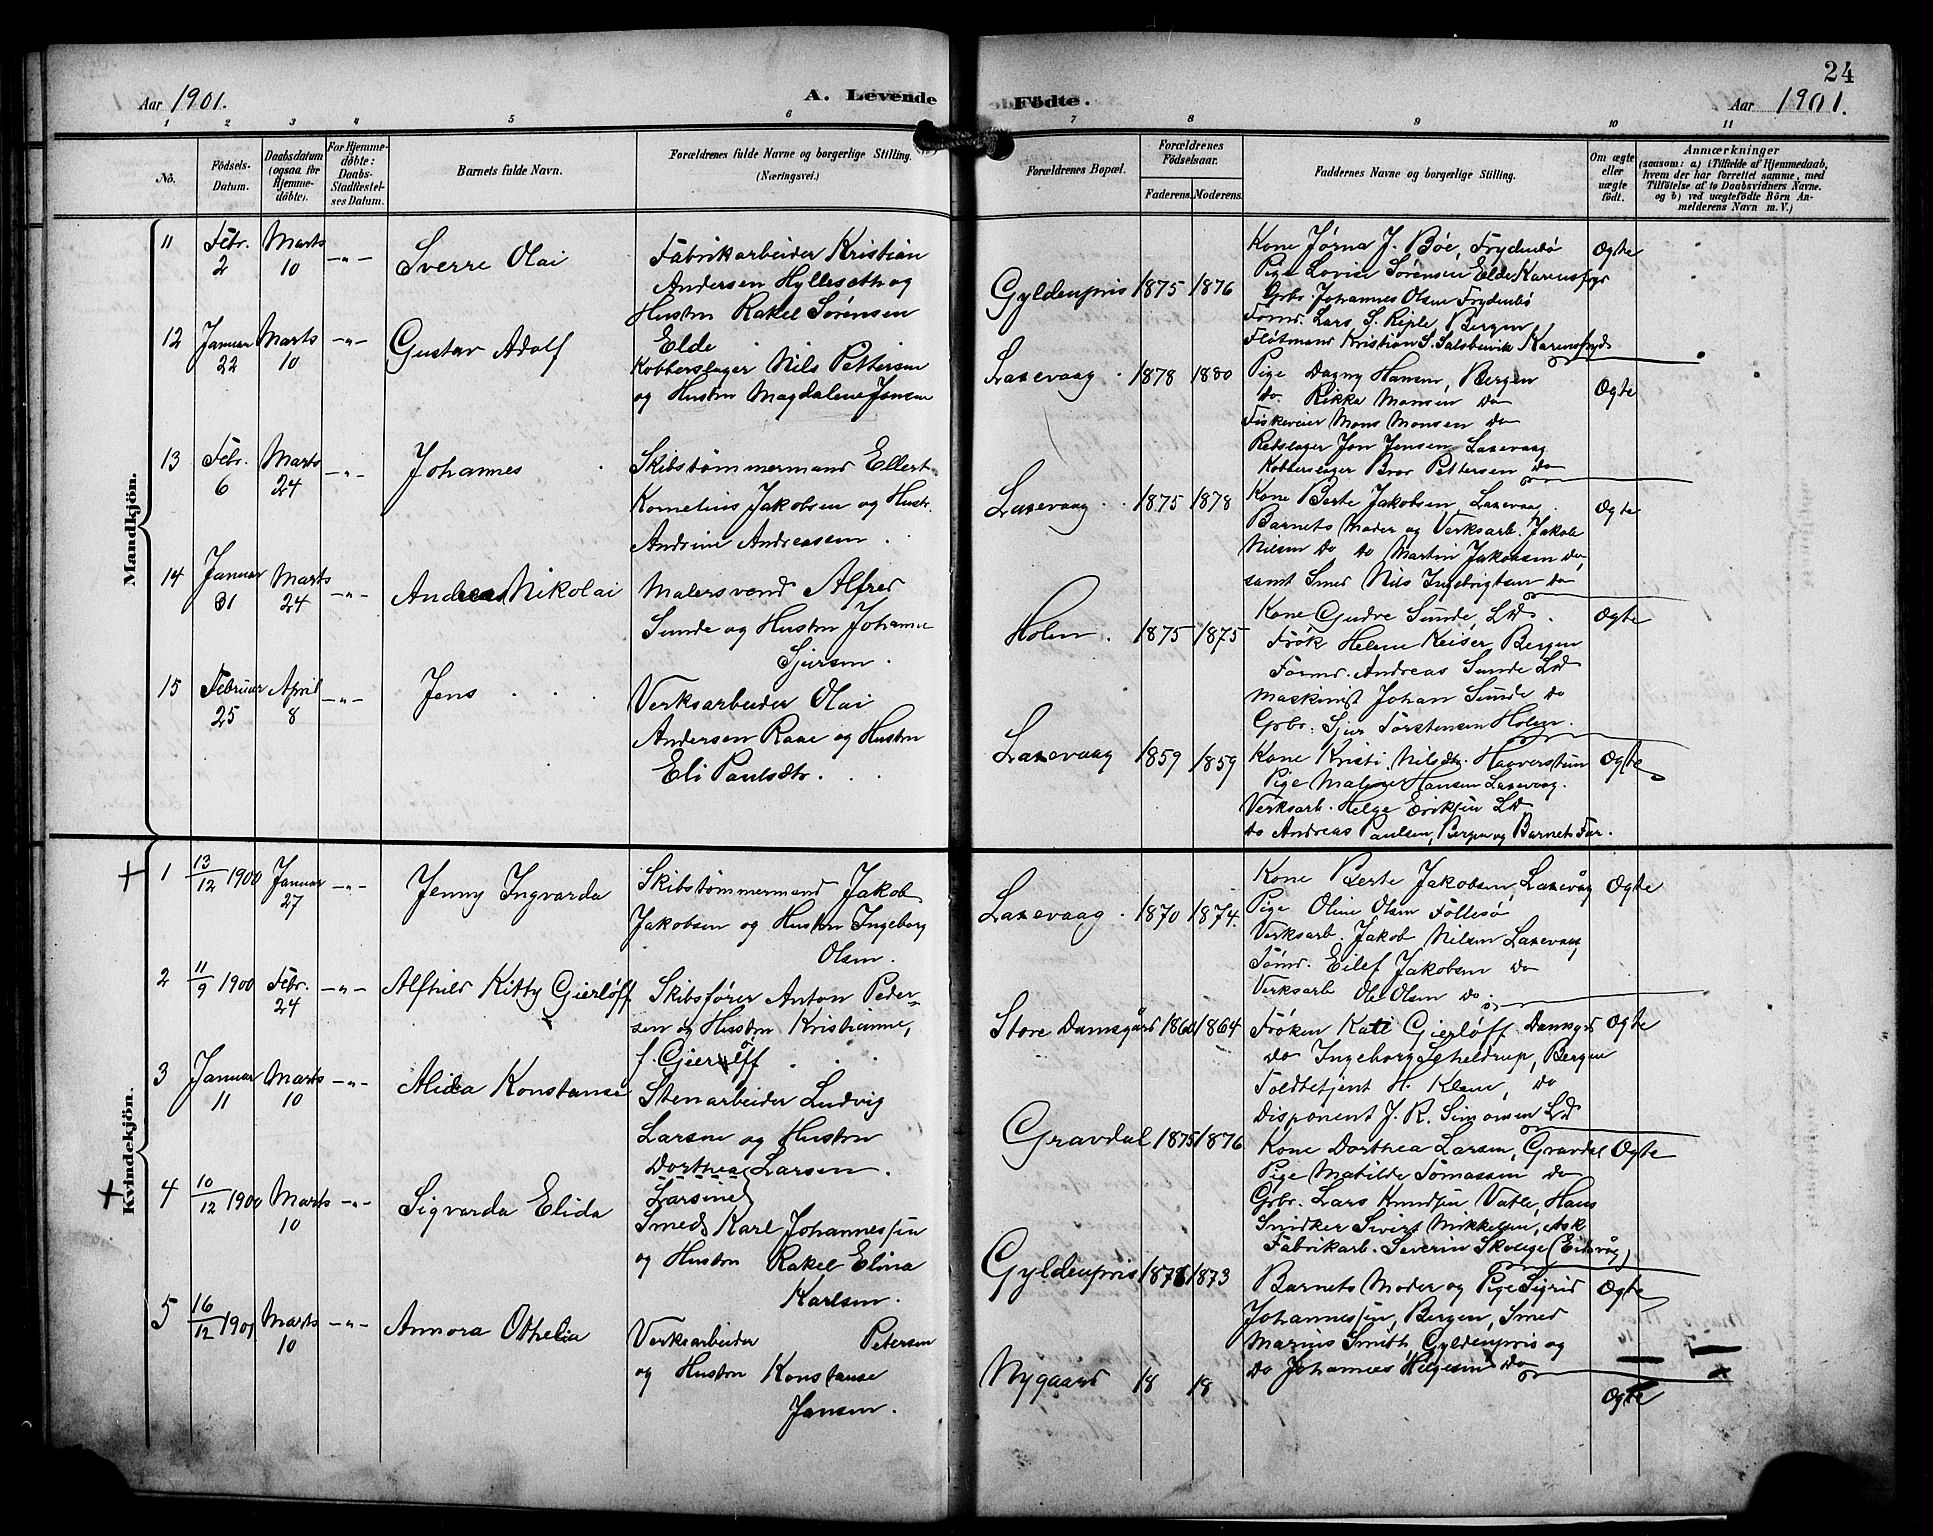 24
Aar 1901.
A. Levende
Födte.
Aar 1901.
1 2 3 4 5 6 7 8 9 10 11
No.
Födsels-
Datum.
Daabsdatum
(ogsaa for
Hjemme-
döbte).
For Hjemme-
döbte:
Daabs-
Stadfæstel-
ses Datum.
Barnets fulde Navn.
Forældrenes fulde Navne og borgerlige Stilling.
(Næringsvei.)
Forældrenes Bopæl.
Forældrenes
Födselsaar.
Faderens. Moderens.
Faddernes Navne og borgerlige Stilling.
Om ægte
eller
uægte
født.
Anmærkninger
(saasom: a) i Tilfælde af Hjemmedaab,
hvem der har forrettet samme, med
Tilföielse af to Daabsvidners Navne,
og b) ved uægtefödte Börn An-
melderens Navn m. V.)
Mandkjön.
11 Febr. 2 Marts 10 -"- Sverre Olai
Fabrikarbeider Kristian
Andersen Hylleseth og
Hustru Rakel Sørensen
Elde
Gyldenpris 1875 1876
Kone Jørna J. Bøe, Frydenbø
Pige Lovise Sørensen Elde Karensfryd
Grbr. Johannes Olsen Frydenbø
Tømd. Lars S. Reple, Bergen
Fløtmand Kristian S. Salsbuvik Karensfryd
Ægte
12 Januar 22 Marts 10 -"- Gustav Adolf
Kobberslager Nils Pettersen
og Hustru Magdalene Jansen
Laxevaag. 1878 1880
Pige Dagny Hansen, Bergen
do Rikka Monsen do
Fiskeveier Mons Monsen do
Rebslager Jon Jensen Laxevaag
Kobberslager Bror Pettersen do
Ægte
13 Febr. 6 Marts 24 -"- Johannes
Skibstømmermand Ellert
Kornelius Jakobsen og Hustr.
Andrine Andreassen
Laxevaag 1875 1878
Kone Berte Jakobsen, Laxevaag
Barnets Moder og Verksarb. Jakob
Nilsen do do Martin Jakobsen do,
samt Smed Nils Ingebrigtsen do
Ægte
14 Januar 31 Marts 24 -"- Andreas Nikolai
Malersvend Alfred
Sunde og Hustru Johanne
Sjursen.
Holen. 1875 1875
Kone Gudve Sunde, Ld.
Frök Helene Keiser, Bergen
Formd. Andreas Sunde Ld
Maskinist Johan Sunde do
Grbr. Sjur Torstensen Holen.
Ægte
15 Februar 25 April 8 -"- Jens
Verksarbeider Olai
Andersen Raae og Hustru
Eli Paulsdtr.
Laxevaag 1859 1859
Kone Kristi Nilsdtr. Haaverstun
Pige Malene Hansen Laxevaag.
Verksarb. Helge Eriksen Ld
do Andreas Paulsen, Bergen og Barnets Far.
Ægte
Kvindekjön.
+ 1 13/12 1900 Januar 27 -"- Jenny Ingvarda
Skibstømmermand Jakob
Jakobsen og Hustru Ingeborg
Olsen.
Laxevaag. 1870 1874.
Kone Berte Jakobsen, Laxevåg
Pige Oline Olsen Föllesö
Verksarb. Jakob Nilsen Laxevaag
Tömd. Eilef Jakobsen do
Verksarb Ole Olsen do.
Ægte
2 11/9 1900 Febr. 24 -"- Alfhild Kitty Gierlöff
Skibsfører Anton Peder-
sen og Hustru Kristianne,
f. Gierlöff
Store Damsgård 1860 1864
Fröken Kati Gierlöff Damsgd
do Ingeborg Scheldrup, Bergen
Toldbetjent H. Klem, do
Disponent J. R. Simonsen Ld
Ægte
3 Januar 11 Marts 10 -"- Alida Konstanse
Stenarbeider Ludvig
Larsen og Hustru
Dorthea Larsen.
Larsine
Gravdal 1875 1876
Kone Dorthea Larsen, Gravdal
Pige Matilde Tomassen do
Grbr. Lars Knudsen Vatle, Haus
Snidker Sivert Mikkelsen, Ask
Fabrikarb. Severin Skolige (Eidsvåg)
Ægte
+ 4 10/12 1900 Marts 10 -"- Sigvarda Elida
Smed Karl Johannessen
og Hustru Rakel Elina
Karlsen.
Gyldenpris 1873
Barnets Moder og Pige Sigrid
Johannessen, Bergen, Smed
Marius Smith, Gyldenpris og
do Johannes Helgesen do
Ægte
5 16/12 1901 Marts 10 -"- Annora Othelia
Verksarbeider Petersen
og Hustru Konstanse
Jansen.
Nygaard 18 18
Ægte